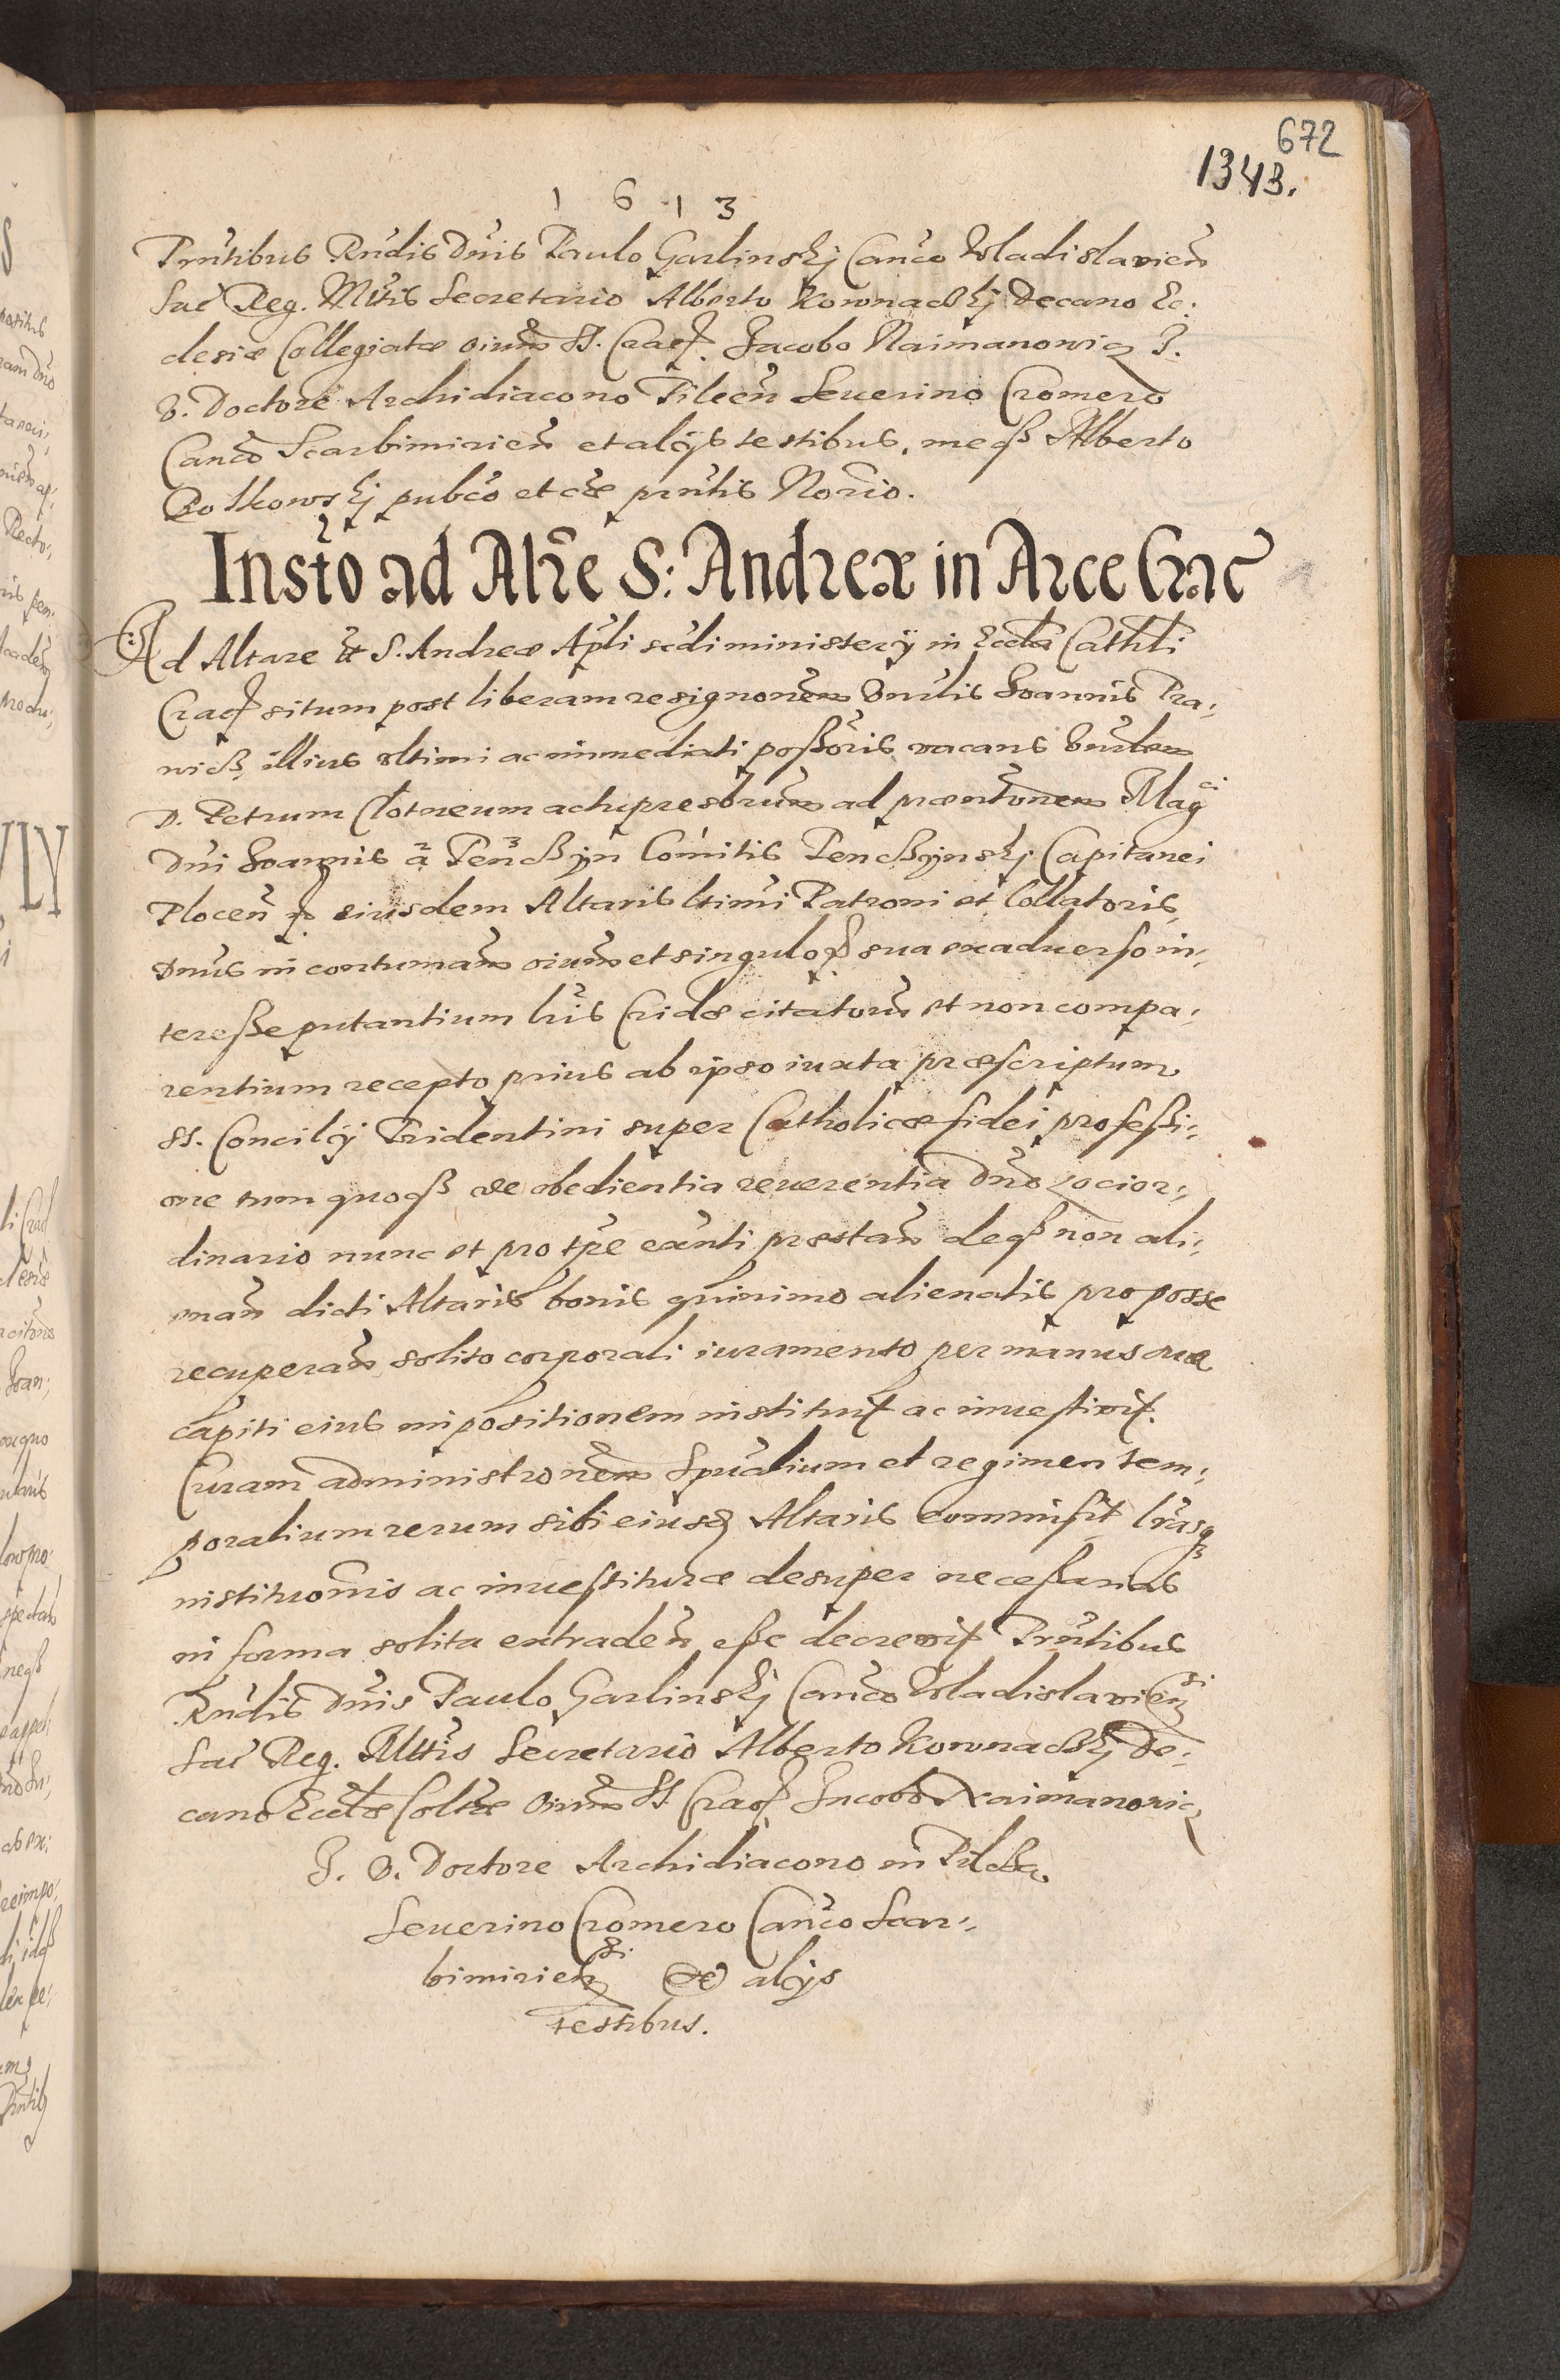 672
1343.
1 6 1 3
Prntibus Rndis Dnis Paulo Garlinskj Canco Wladislavien
Sac Reg. Mtis Secretario Alberto Kownackj Decano Ec:
clesiæ Collegiatæ oium SS. Crac. Jacobo Naimanowicz J.
V. Doctore Archidiacono Pilcen Seuerino Cromero
Canco Scarbimirien et alijs testibus, meq3 Alberto
Roskowskj pubco et cæ prntis Norio.
Insto ad Alre S: Andreæ in Arce Crac
Ad Altare S. Andreæ Apli scdi ministerij in Eccla Cathli
Crac situm post liberam resignonem Vnrlis Joannis Pra,,
illius vltimi ac immediati possoris vacans Vnrlem
D. Petrum Clotneum achipresbrum ad præntonem Magci
Dni Joannis a Tenczyn Comitis Tenczynskj Capitanei
Plocen eiusdem Altaris ltimi Patroni et Collatoris,
Dnus in contumam oium et singulor sua ex aduerso in,,
teresse putantium lris Cridæ citatorum et non compa,,
rentium recepto prius ab ipso iuxta præscriptum
SS. Concilij Tridentini super Catholicæ fidei professi,,
one tum quoq3 de obedientia reuerentia Dno Locior,,
dinario nunc et pro tpe exnti præstan deq3 non alie,,
nan dicti Altaris bonis quinimo alienatis pro posse
recuperan solito corporali iuramento per manus suæ
capiti eius impositionem instituit ac inuestivit.
Curam administronem Spualium et regimen tem,,
poralium rerum sibi eiusd Altaris commisit lrasq3
institutionis ac inuestituræ desuper necessarias
in forma solita extraden esse decrevit Prntibus
Rndis Dnis Paulo Garlinskj Canco Wladislavien
Sac Reg. Mttis Secretario Alberto Kownackj De,,
cano Ecclæ Coltæ Oium SS Crac Jacobo Naimanowicz
J. V. Doctore Archidiacono in Pilcza
Seuerino Cromero Canco Scar,,
bimirien & alijs
testibus.